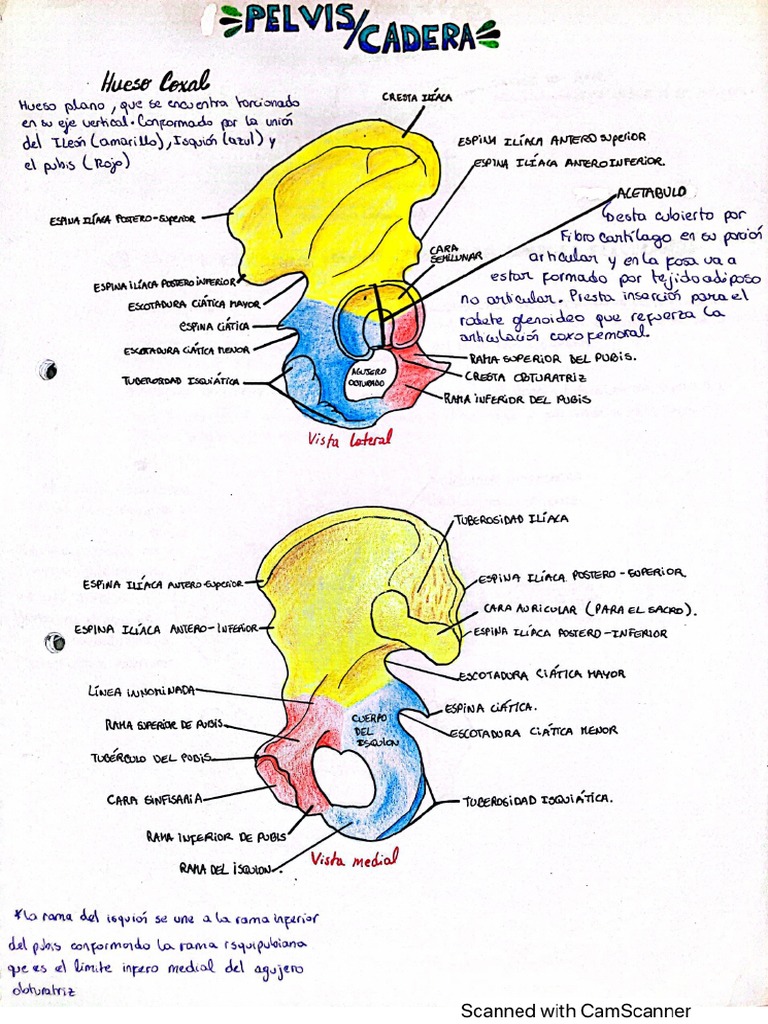 PELVIS/CADERA
Hueso Coxal
Hueso plano, que se encuentra torcionado
en su eje vertical. Conformado por la unión
del Ileón (amarillo), Isquión (azul) y
el pubis (Rojo)
CRESTA ILÍACA
ESPINA ILÍACA ANTERO SUPERIOR
ESPINA ILÍACA ANTERO INFERIOR.
ACETABULO
Desta cubierto por
Fibro cartílago en su porción
articular y en la fosa va a
estar formado por tejido adiposo
no articular. Presta inserción para el
rodete glenoideo que refuerza la
articulación coxofemoral.
ESPINA ILÍACA POSTERO-SUPERIOR
CARA
SEMILUNAR
ESPINA ILÍACA POSTERO INFERIOR
ESCOTADURA CIÁTICA MAYOR
ESPINA CIÁTICA
ESCOTADURA CIÁTICA MENOR
TUBEROSIDAD ISQUIÁTICA
AGUJERO
OBTURADO
RAMA SUPERIOR DEL PUBIS.
CRESTA OBTURATRIZ
RAMA INFERIOR DEL PUBIS
Vista lateral
TUBEROSIDAD ILÍACA
ESPINA ILÍACA ANTERO-SUPERIOR
ESPINA ILÍACA POSTERO-SUPERIOR.
CARA AURICULAR (PARA EL SACRO).
ESPINA ILÍACA ANTERO-INFERIOR
ESPINA ILÍACA POSTERO-INFERIOR
ESCOTADURA CIÁTICA MAYOR
LÍNEA INNOMINADA
ESPINA CIÁTICA.
RAMA SUPERIOR DE PUBIS
CUERPO
DEL
ISQUION
ESCOTADURA CIATICA MENOR
TUBÉRCULO DEL PUBIS
CARA SINFISARIA
TUBEROSIDAD ISQUIÁTICA.
RAMA INFERIOR DE PUBIS
RAMA DEL ISQUION.
Vista medial
*La rama del isquión se une a la rama inferior
del pubis conformando la rama isquipubiana
que es el límite infero medial del agujero
obturatriz
Scanned with CamScanner